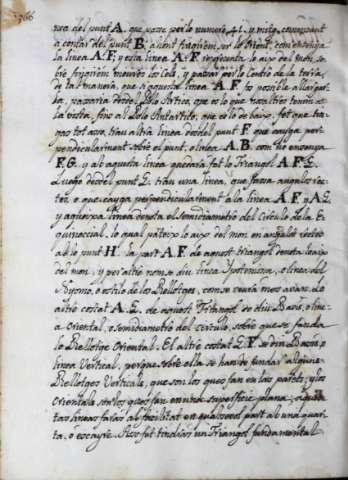 nea del punt A. que passe per lo numero 41. y mitg, comensant
a contar del punt B. ahont fingirem ser lo Orient, com ensenya
la linea A. F. y esta linea A. F. representa lo aix del mon, so-
bre fingirem mourers los Cels, y passar per lo centro de la terra,
de tal manera, que si aquesta linea A. F. fos possible allargar
la, passaria desde Polo Artico, que es lo que nosaltres tenim a
la vista, fins al Polo Antartico, que es lo de baix, fet que tin-
gas tot asso, trau altra linea desdel punt F. que caiga per-
pendicularment sobre el punt, o linea A. B. com ho ensenya
F. G. y ab aquesta linea quedará fet lo Triangol A. F. G.
Luego desdel punt G. trau una linea, que fassa angulos rec-
tos, o que cayga perpendicularment a la linea A. F. y A G
y aqueixa linea denota el Semidiametro del Circulo de la E-
quinoccial, lo qual pateix lo aix del mon en angulos rectos
ab lo punt H. la part A. F. de aquest triangol denota la aix
del mon, y per altre nom se diu linea Ipotenusa, o linea del
Gnomo, o estilo de los Rellotges, com se veurá mes avan. Lo
altre costat A. G. de aquest Triangol se diu Basis, o line-
a oriental, o semidiametro del vertice, sobre que se funda
lo Rellotge Oriental. El altre costat G. F. se diu Basis, o
linea Vertical, perque sobre ella se han de fundar alguns
Rellotges Verticals, que son los ques fan en las parets; y los
orientals son los ques fan en una superficie plana; aques-
tas lineas farás ab facilitat en qualsevol part ab una quarti-
ta, o escayre. Asso fet tindrás un Triangol fundamental